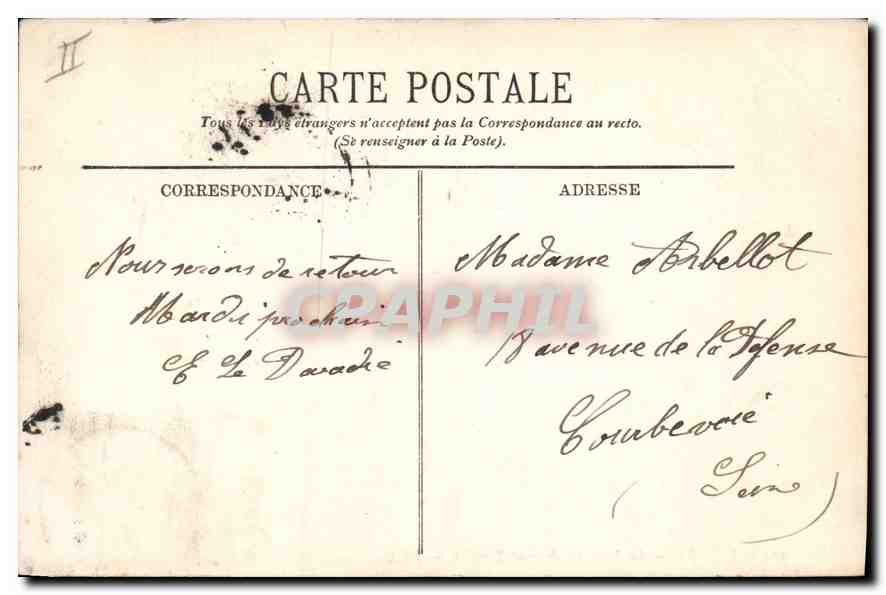 II
CARTE POSTALE
Tous les Pays étrangers n'acceptent pas la Correspondance au recto.
(Se renseigner à la Poste).
CORRESPONDANCE
Nous serons de retour
Mardi prochain
E Le
ADRESSE
Madame Arbellot
avenue de la Defense
Courbevoie
(Seine)
CPAPHIL